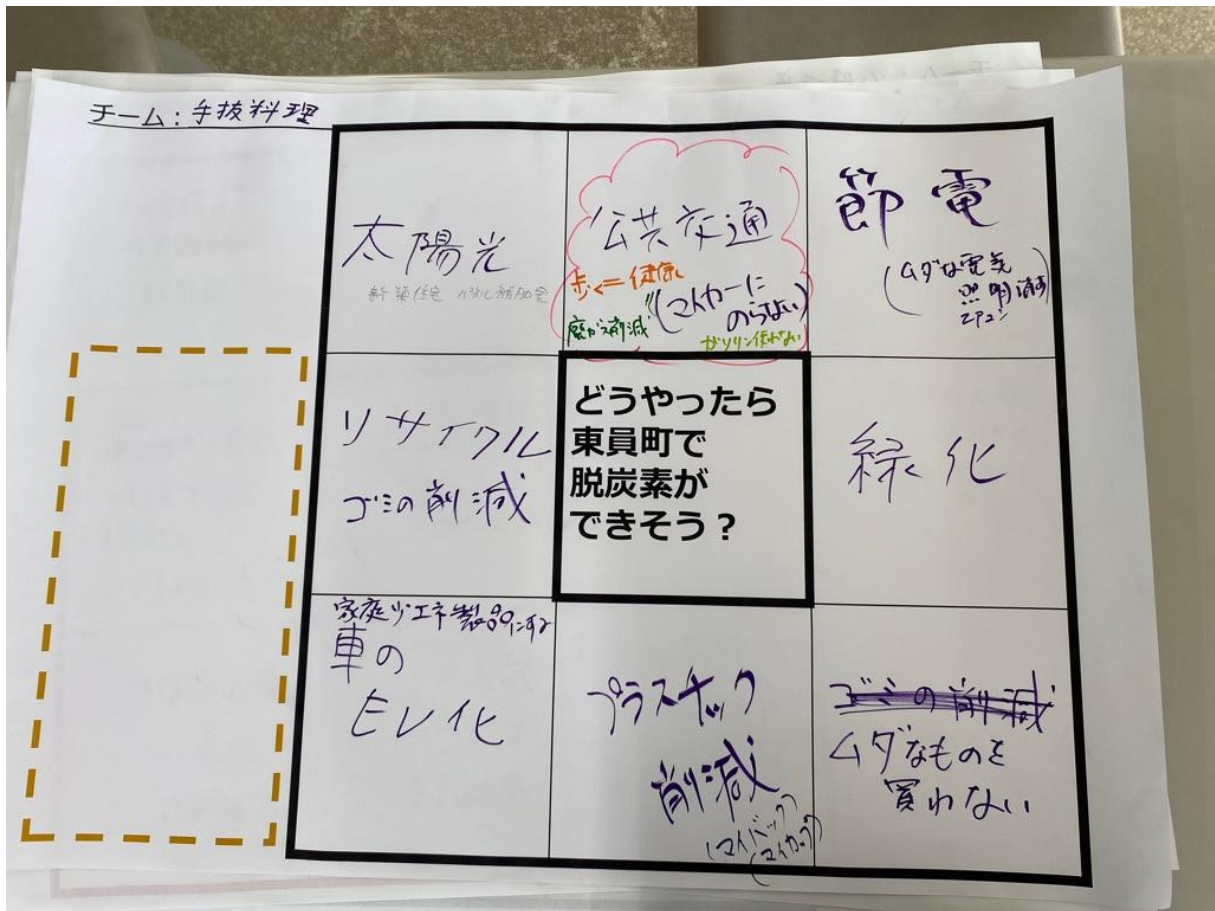 チーム：手抜料理
太陽光
新築住宅 パネル補助金
公共交通
歩く＝健康
(マイカーに
のらない)
廃ガス削減
ガソリン使わない
節電
(ムダな電気
照明 消す
エアコン
リサイクル
ゴミの削減
どうやったら
東員町で
脱炭素が
できそう？
緑化
家庭 省エネ製品にする
車の
EV化
プラスチック
削減
(マイバック)
(マイカップ)
ゴミの削減
ムダなものを
買わない